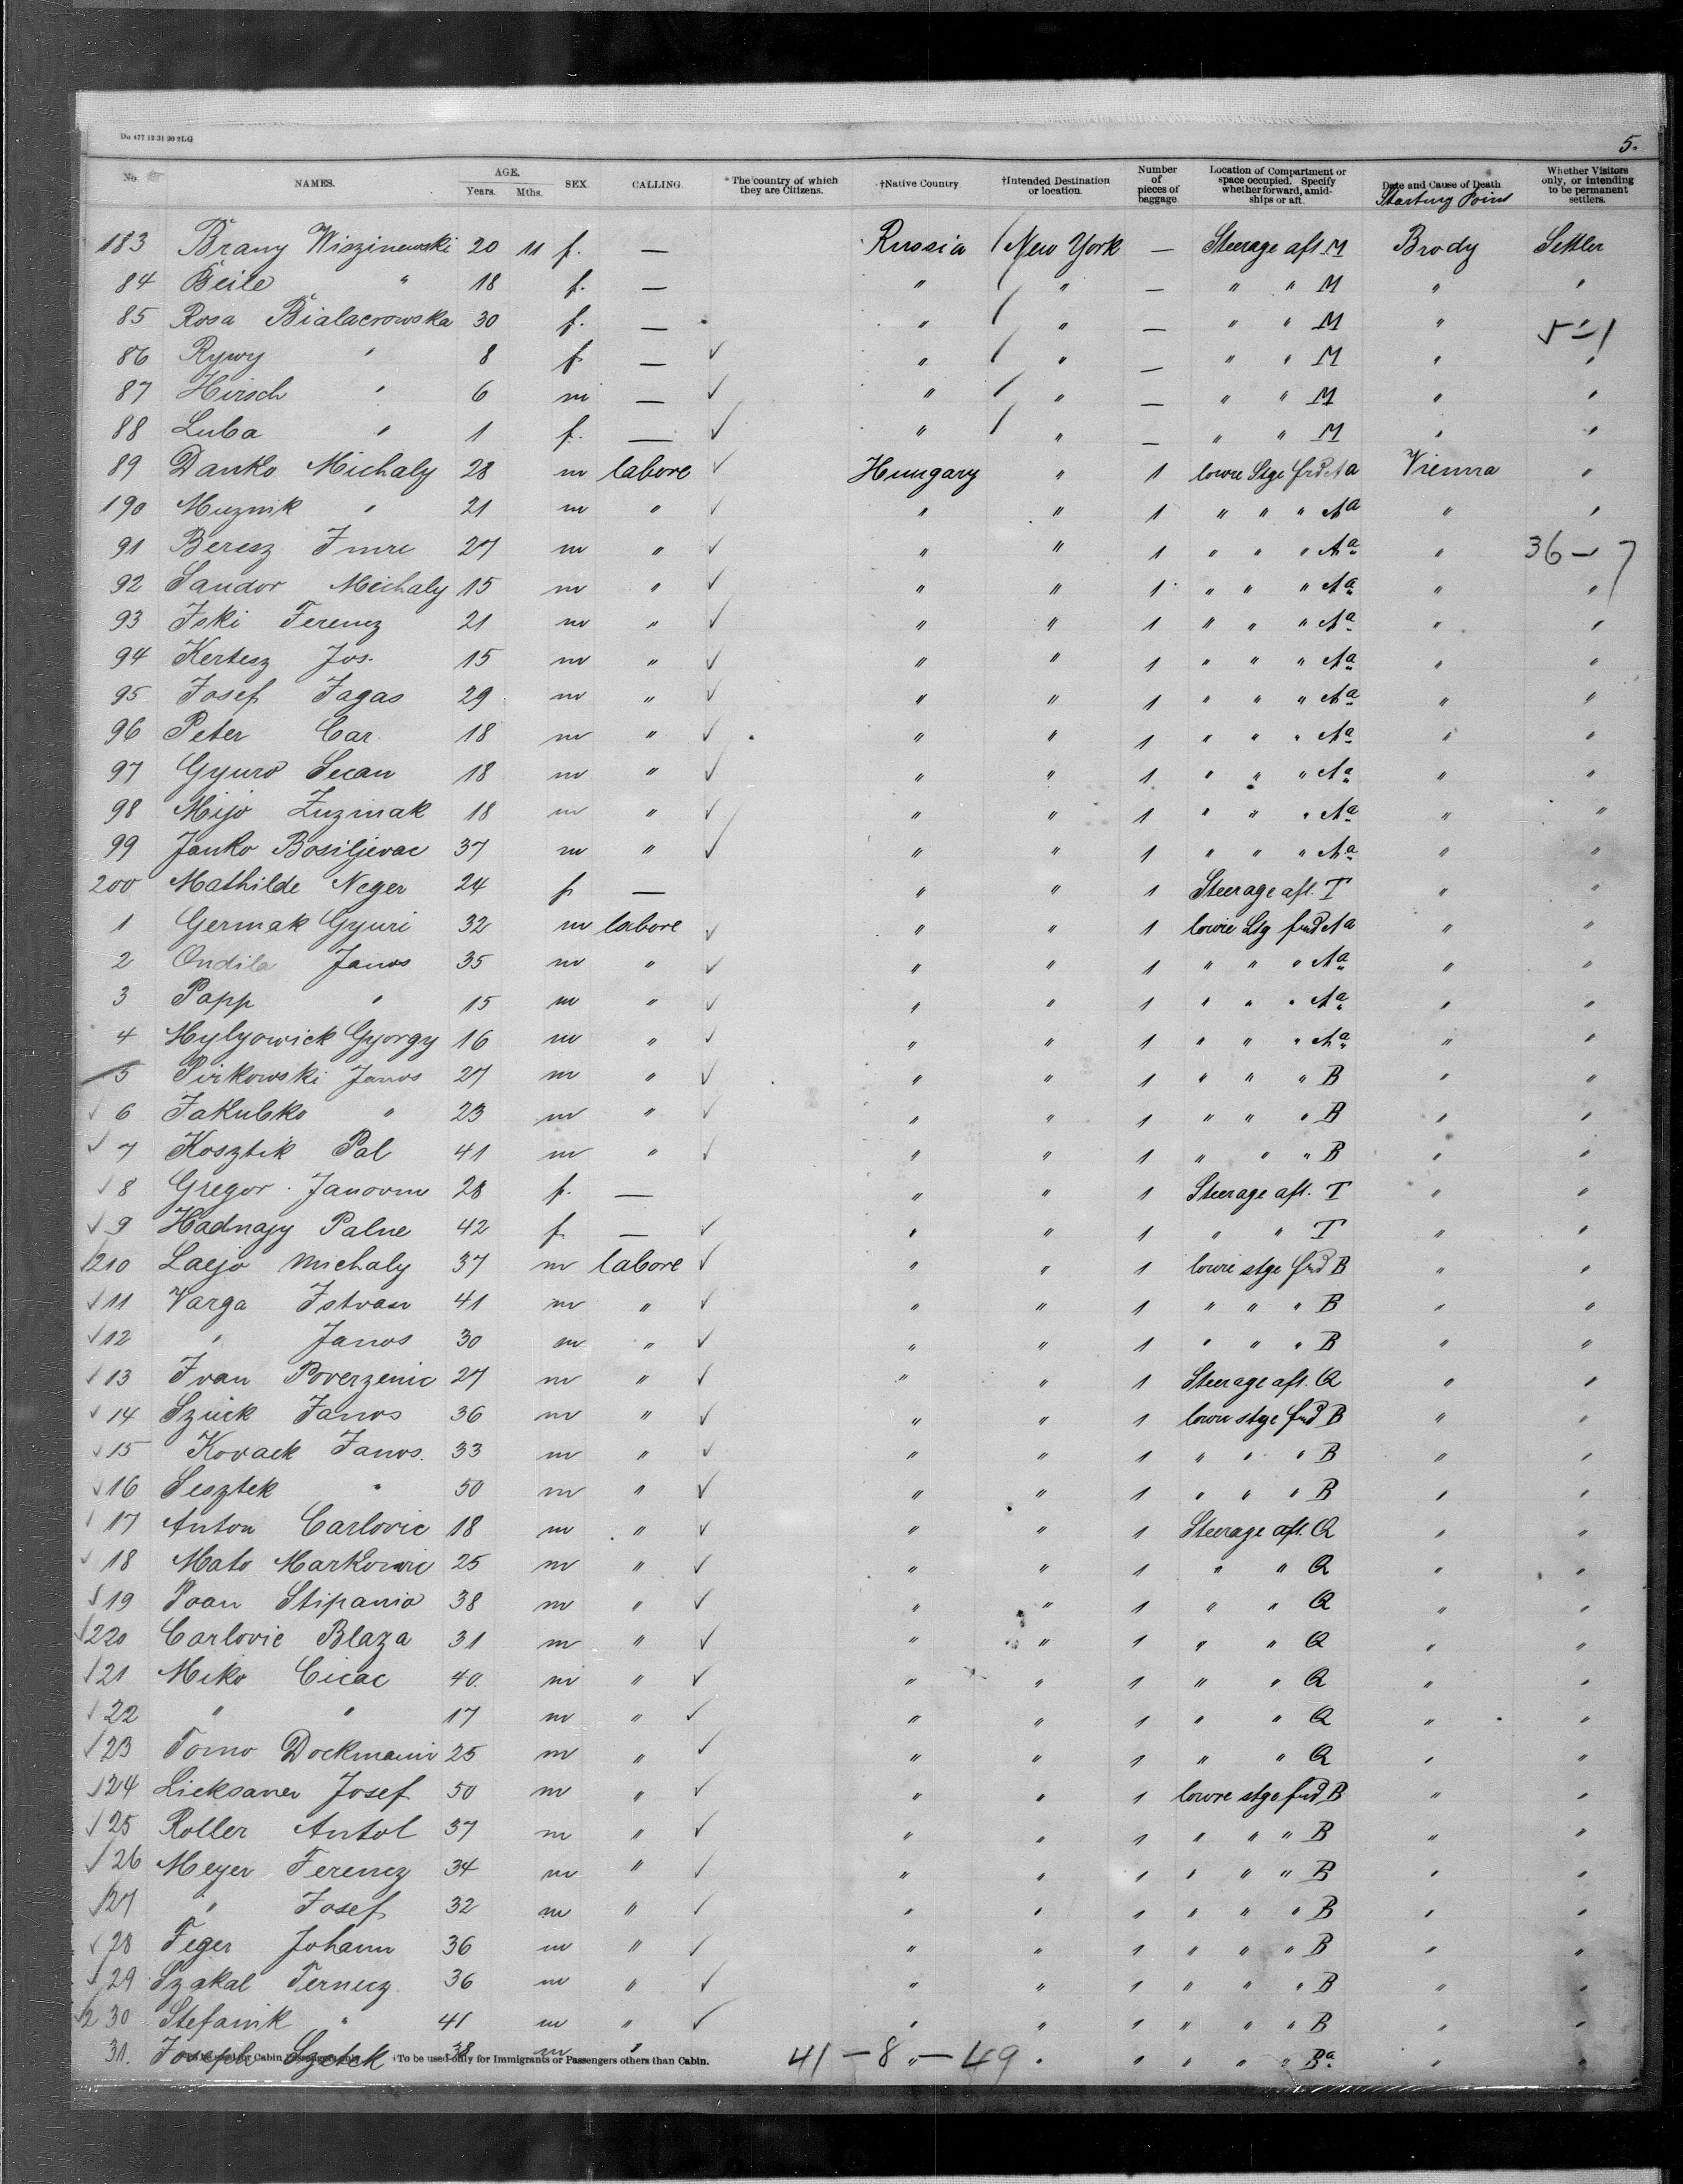 Do 477 12 31 90 2LG
5.
No. NAMES. AGE. Years. Mths. SEX. CALLING. *The country of which they are Citizens. †Native Country †Intended Destination or location. Number of pieces of baggage Location of Compartment or space occupied. Specify whether forward, amidships or aft. Date and Cause of Death Starting Point Whether Visitors only, or intending to be permanent settlers.
183 Brany Wiszinewski 20 11 f. — Russia New York — Steerage aft M Brody Settler
84 Beile " 18 f. — " " — " " M " "
85 Rosa Bialacrowska 30 f. — " " — " " M " "
5–1
86 Rywy " 8 f — " " — " " M " "
87 Hirsch " 6 m — " " — " " M " "
88 Luba " 1 f. — " " — " " M " "
89 Danko Michaly 28 m labore Hungary " 1 lowre Stge frd Aa Vienna "
190 Muznik " 21 m " " " 1 " " " Aa " "
91 Beresz Imre 27 m " " " 1 " " " Aa "
36–7
92 Sandor Michaly 15 m " " " 1 " " " Aa " "
93 Iski Ferencz 21 m " " " 1 " " " Aa " "
94 Kertesz Jos. 15 m " " " 1 " " " Aa " "
95 Josef Jagas 29 m " " " 1 " " " Aa " "
96 Peter Car 18 m " " " 1 " " " Aa " "
97 Gyuro Secan 18 m " " " 1 " " " Aa " "
98 Mijo Zuzmak 18 m " " " 1 " " " Aa " "
99 Janko Bosiljevac 37 m " " " 1 " " " Aa " "
200 Mathilde Neger 24 f — " " 1 Steerage aft. T " "
1 Germak Gyuri 32 m labore " " 1 lowre Stg frd Aa " "
2 Ondila Janos 35 m " " " 1 " " " Aa " "
3 Papp " 15 m " " " 1 " " " Aa " "
4 Hylyowick Gyorgy 16 m " " " 1 " " " Aa " "
5 Pirkowski Janos 27 m " " " 1 " " " B " "
6 Jakubko " 23 m " " " 1 " " " B " "
7 Kosztik Pal 41 m " " " 1 " " " B " "
8 Gregor Janovne 28 f. — " " 1 Steerage aft. T " "
9 Hadnagy Palne 42 f — " " 1 " " T " "
210 Laejo Michaly 37 m labore " " 1 lowre stge frd B " "
11 Varga Istvan 41 m " " " 1 " " " B " "
12 " Janos 30 m " " " 1 " " " B " "
13 Ivan Poverzenic 27 m " " " 1 Steerage aft. Q " "
14 Szuck Janos 36 m " " " 1 lowre stge frd B " "
15 Kovack Janos. 33 m " " " 1 " " " B " "
16 Sesztek " 50 m " " " 1 " " " B " "
17 Anton Carlovic 18 m " " " 1 Steerage aft. Q " "
18 Mato 25 m " " " 1 " " Q " "
19 Ivan Stipanic 38 m " " " 1 " " Q " "
220 Carlovic Blaza 31 m " " " 1 " " Q " "
21 Miko Cicac 40 m " " " 1 " " Q " "
22 " " 17 m " " " 1 " " Q " "
23 Tomo 25 m " " " 1 " " Q " "
24 Josef 50 m " " " 1 lowre stge frd B " "
25 Roller Antol 37 m " " " 1 " " " B " "
26 Meyer Ferencz 34 m " " " 1 " " " B " "
27 " Josef 32 m " " " 1 " " " B " "
28 Feger Johann 36 m " " " 1 " " " B " "
29 Szakal Fernecz 36 m " " " 1 " " " B " "
230 Stefanik " 41 m " " " 1 " " " B " "
31. Joseph 38 m " " " " " " " Ba " "
†To be used only for Immigrants or Passengers others than Cabin.
41 – 8 – 49